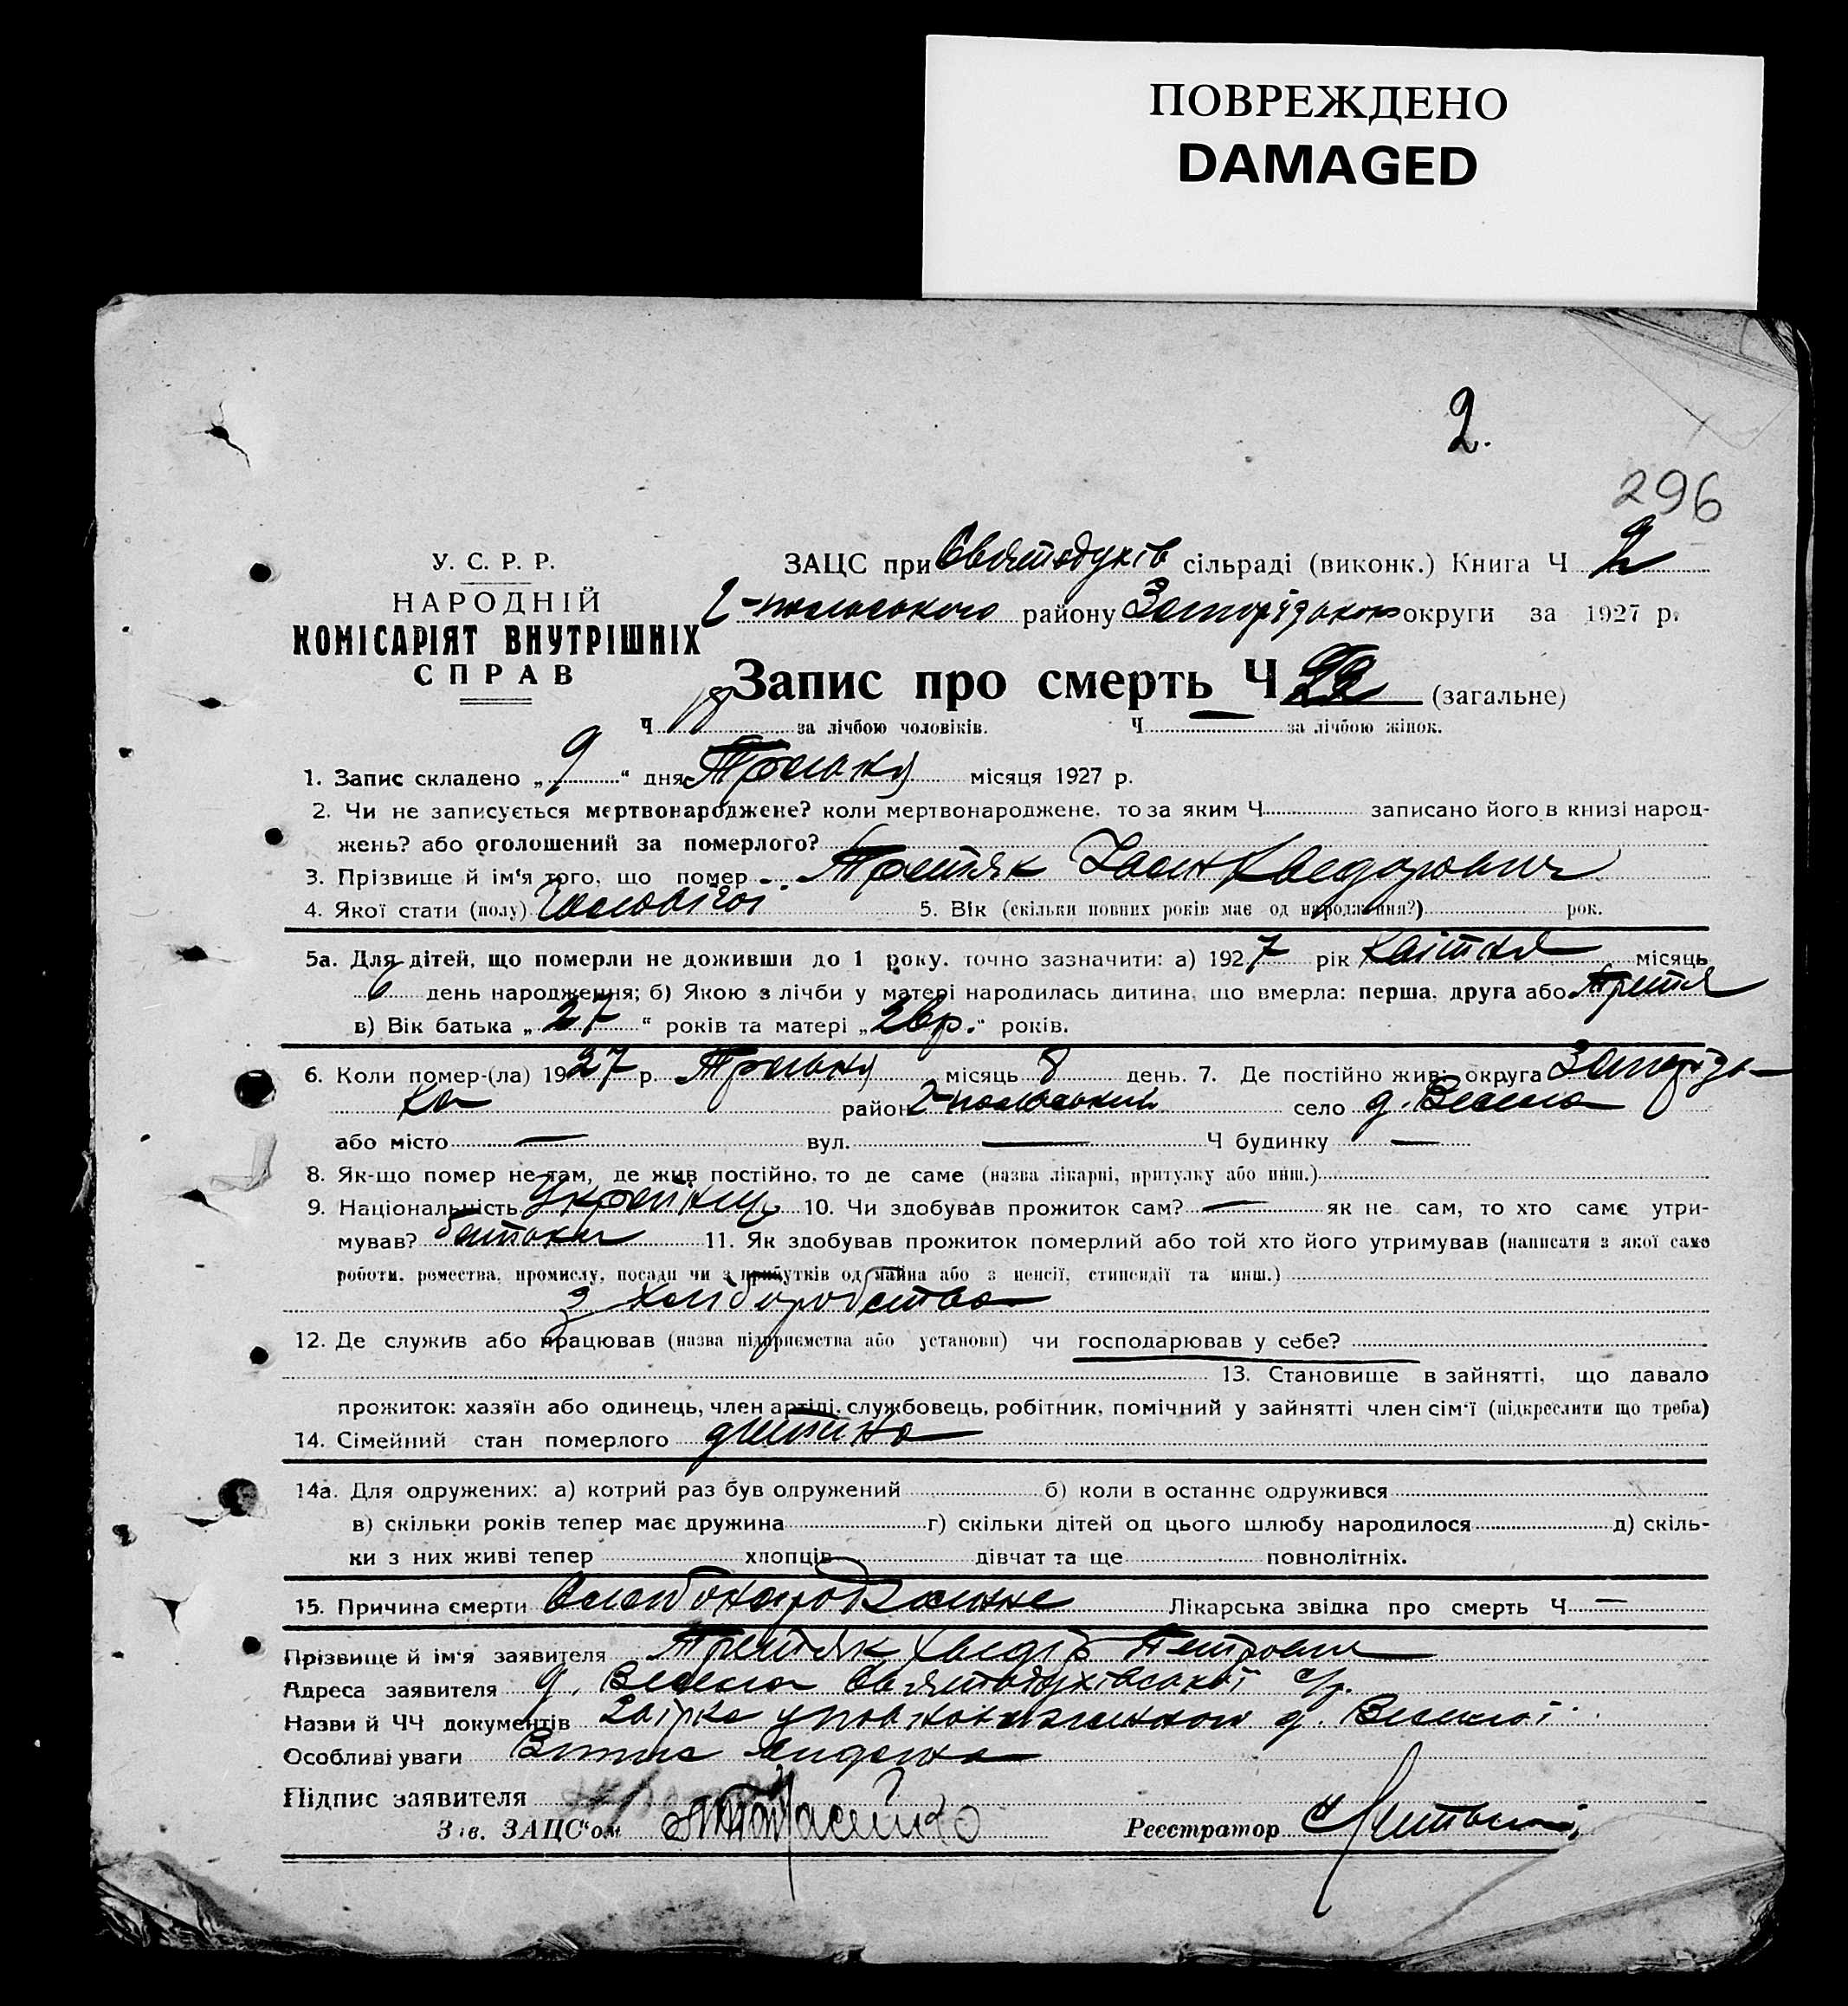 ПОВРЕЖДЕНО
DAMAGED
2.
296
У. С. Р. Р.
НАРОДНІЙ
КОМІСАРІЯТ ВНУТРІШНІХ
СПРАВ
ЗАЦС при Святодухів сільраді (виконк.) Книга Ч 2
району округи за 1927 р.
Запис про смерть Ч (загальне)
Ч за лічбою чоловіків. Ч за лічбою жінок.
1. Запис складено „ 9 “ дня Травня місяця 1927 р.
2. Чи не записується мертвонароджене? коли мертвонароджене, то за яким Ч записано його в книзі народ-
жень? або оголошений за померлого?
3. Прізвище й ім'я того, що помер Третяк Іван Хведорович
4. Якої стати (полу) Чоловічої 5. Вік (скільки повних років має од народження?) рок.
5а. Для дітей, що померли не доживши до 1 року, точно зазначити: а) 1927 рік Квітня місяць
6 день народження; б) Якою з лічби у матері народилась дитина, що вмерла: перша, друга або третя
в) Вік батька „ 27 “ років та матері „ 26 р. “ років.
6. Коли помер-(ла) 1927 р. Травня місяць 8 день. 7. Де постійно жив: округа Запорізь-
ка район село д. Весела
або місто — вул. — Ч будинку —
8. Як-що помер не там, де жив постійно, то де саме (назва лікарні, притулку або инш.)
9. Національність Українць 10. Чи здобував прожиток сам? — як не сам, то хто саме утри-
мував? батьки 11. Як здобував прожиток померлий або той хто його утримував (написати з якої само
роботи, ремества, промислу, посади чи з прибутків од майна або з пенсії, стипендії та инш.)
з хліборобства
12. Де служив або працював (назва підприємства або установи) чи господарював у себе?
13. Становище в зайнятті, що давало
прожиток: хазяїн або одинець, член артілі, службовець, робітник, помічний у зайнятті член сім'ї (підкреслити що треба)
14. Сімейний стан померлого дитина
14а. Для одружених: а) котрий раз був одружений б) коли в останнє одружився
в) скільки років тепер має дружина г) скільки дітей од цього шлюбу народилося д) скіль-
ки з них живі тепер хлопців дівчат та ще повнолітніх.
15. Причина смерти Лікарська звідка про смерть Ч —
Прізвище й ім'я заявителя Третяк Хведір Петрович
Адреса заявителя д. Весела Святодухівської с/р.
Назви й ЧЧ документів уповноваженного д. Веселої
Особливі уваги
Підпис заявителя
Зав. ЗАЦС'ом
Реєстратор